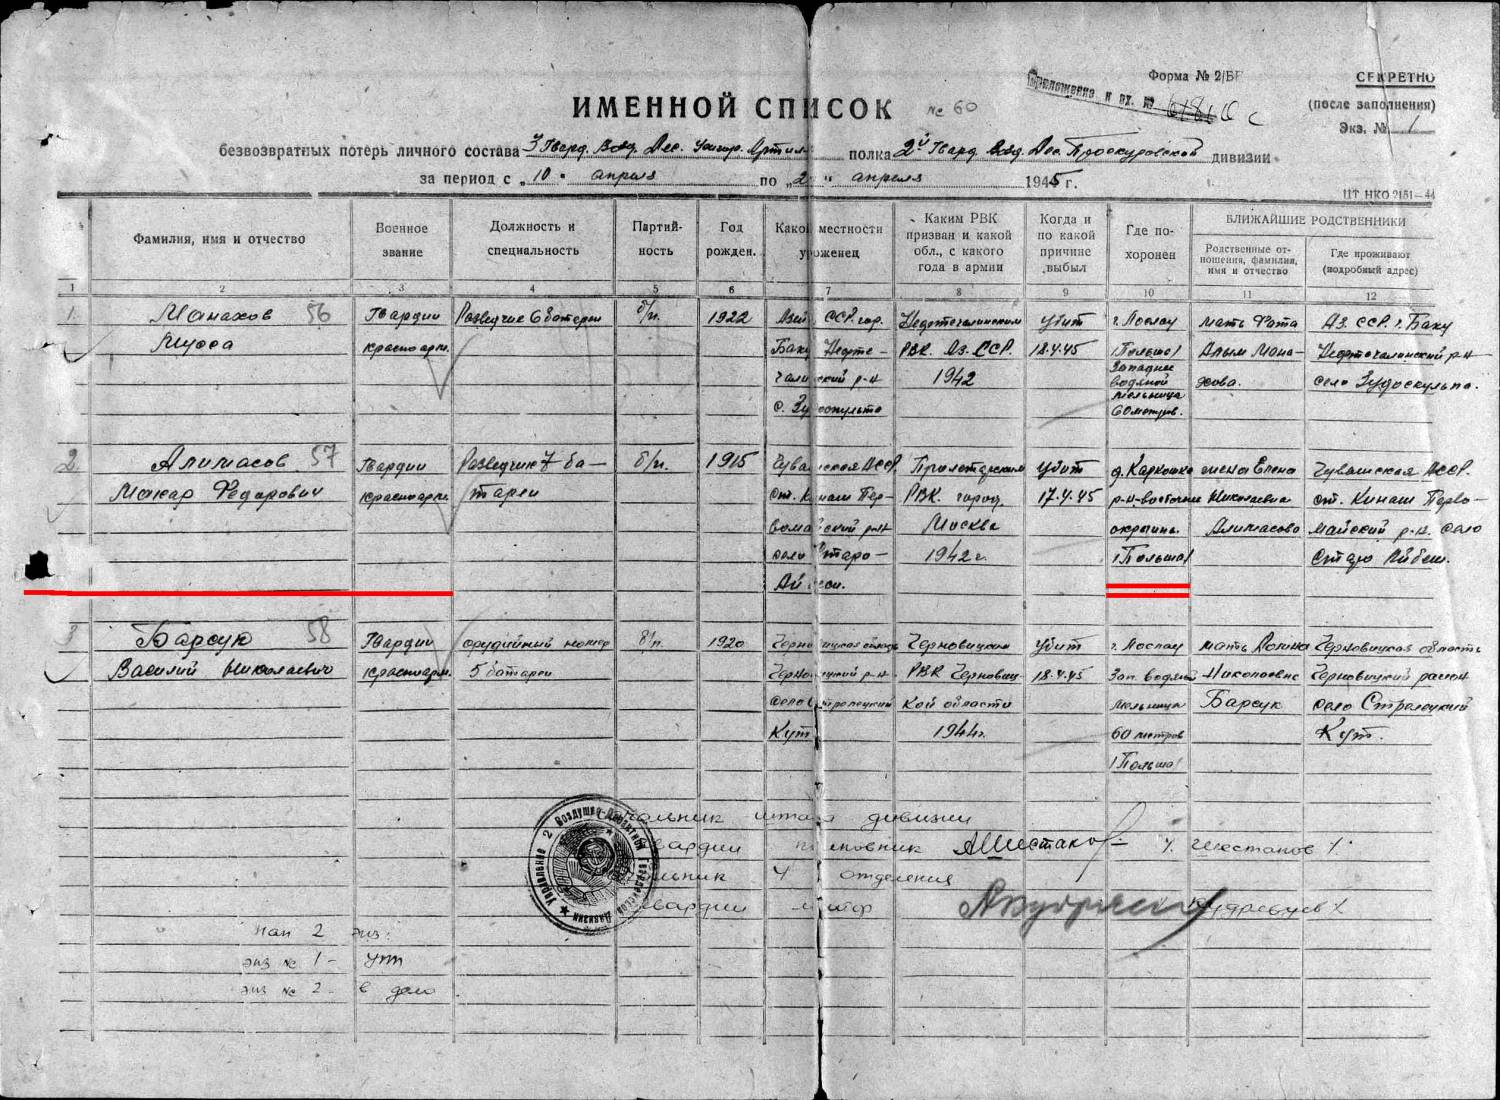 Форма № 2/БП
СЕКРЕТНО
Приложение к вх. №
(после заполнения)
ИМЕННОЙ СПИСОК № 60
Экз. № 1
безвозвратных потерь личного состава 3 Гвард. Возд. Дес. Артил. полка 2й Гвард. Возд. Дес. Проскуровской дивизии
за период с „10" апреля по „2 " апреля 1945 г.
ЦТ НКО 2151—44
Фамилия, имя и отчество
Военное звание
Должность и специальность
Партийность
Год рожден.
Какой местности уроженец
Каким РВК призван и какой обл., с какого года в армии
Когда и по какой причине выбыл
Где похоронен
БЛИЖАЙШИЕ РОДСТВЕННИКИ
Родственные отношения, фамилия, имя и отчество
Где проживают (подробный адрес)
1 2 3 4 5 6 7 8 9 10 11 12
1. Манахов 56 Гвардии Разведчик 6 батареи б/п. 1922 Азий. ССР. гор. убит г. Лослау мать Фата Аз. ССР. г. Баку
Мусса красноарм. Баку Нефте- РВК. Аз. ССР. 18.4.45 /Польша/ Мана- р-н
чалинский р-н 1942 Западнее водяной хова. село
с. мельница
60 метров.
2. Алимасов 57 Гвардии Разведчик 7 ба- б/п. 1915 Чувашская АССР. убит д. жена Елена Чувашская АССР.
Макар Федорович красноарм. тареи ст. Канаш Пер- РВК. город 17.4.45 Николаевна ст. Канаш Перво-
вомайский р-н Москва окраина Алимасова майский р-н. село
село Старо- 1942 г. /Польша/
3 Барсук 58 Гвардии орудийный номер б/п. 1920 Черновицкая область Черновицким убит г. Лослау мать Черновицкая область
Василий Николаевич красноарм. 5 батареи Черновицкий р-н РВК Черновиц- 18.4.45 Зап. водяной Черновицкий район
село Стрелецкий кой области мельницы Барсук село Стрелецкий
Кут 1944 г. 60 метров Кут.
/Польша/
Начальник штаба дивизии
Гвардии полковник АШестаков / Шестаков /
Начальник 4 отделения
Гвардии майор
Управление 2 Воздушно-Десантной Гвардейской Дивизии
нап 2 экз.
экз № 1 -
экз № 2 - в дело